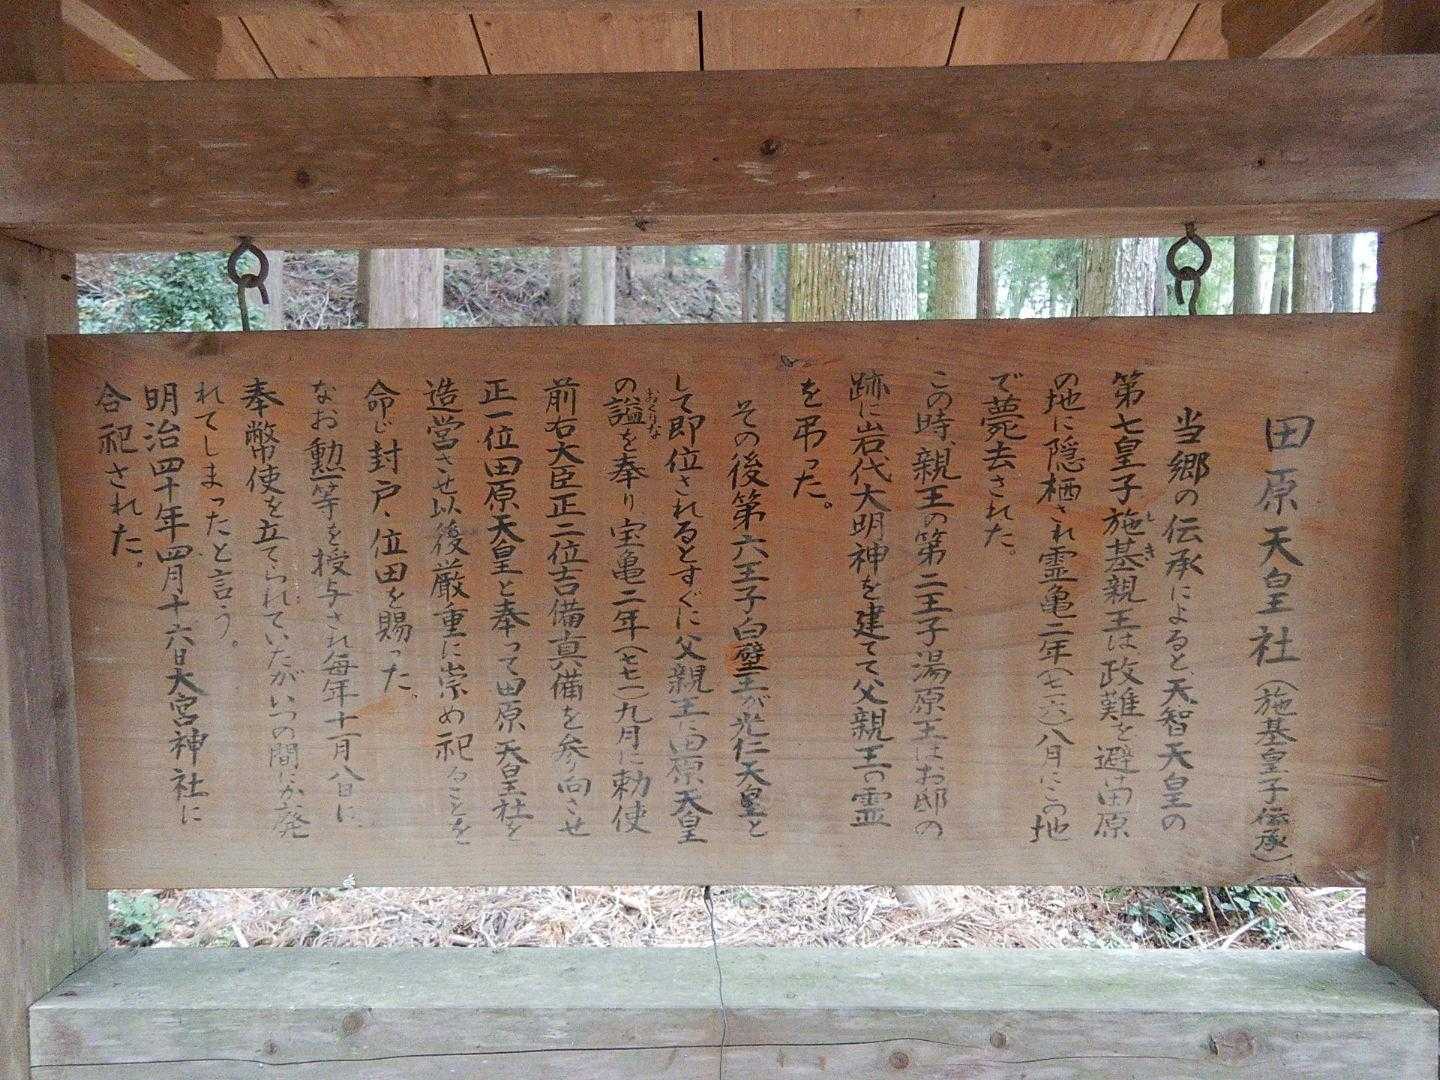 田原天皇社（施基皇子伝承）
当郷の伝承によると、天智天皇の
第七皇子施基親王は政難を避け田原
しき
の地に隠栖され霊亀二年（七一六）八月にこの地
で薨去された。
この時、親王の第二王子湯原王はお邸の
跡に岩代大明神を建てて父親王の霊
を弔った。
その後第六王子白壁王が光仁天皇と
して即位されるとすぐに父親王に田原天皇
の諡を奉り宝亀二年（七七一）九月に勅使
おくりな
前右大臣正二位吉備真備を参向させ
正一位田原天皇と奉って田原天皇社を
造営させ以後厳重に崇め祀ることを
命じ封戸、位田を賜った。
なお勲一等を授与され毎年十一月八日に、
奉幣使を立てられていたがいつの間にか廃
れてしまったと言う。
明治四十年四月十六日大宮神社に
合祀された。